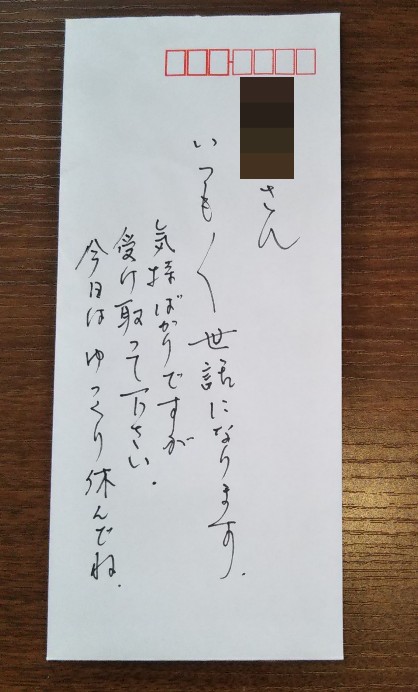 さん
いつも〱世話になります.
気持ばかりですが
受け取って下さい.
今日はゆっくり休んでね.